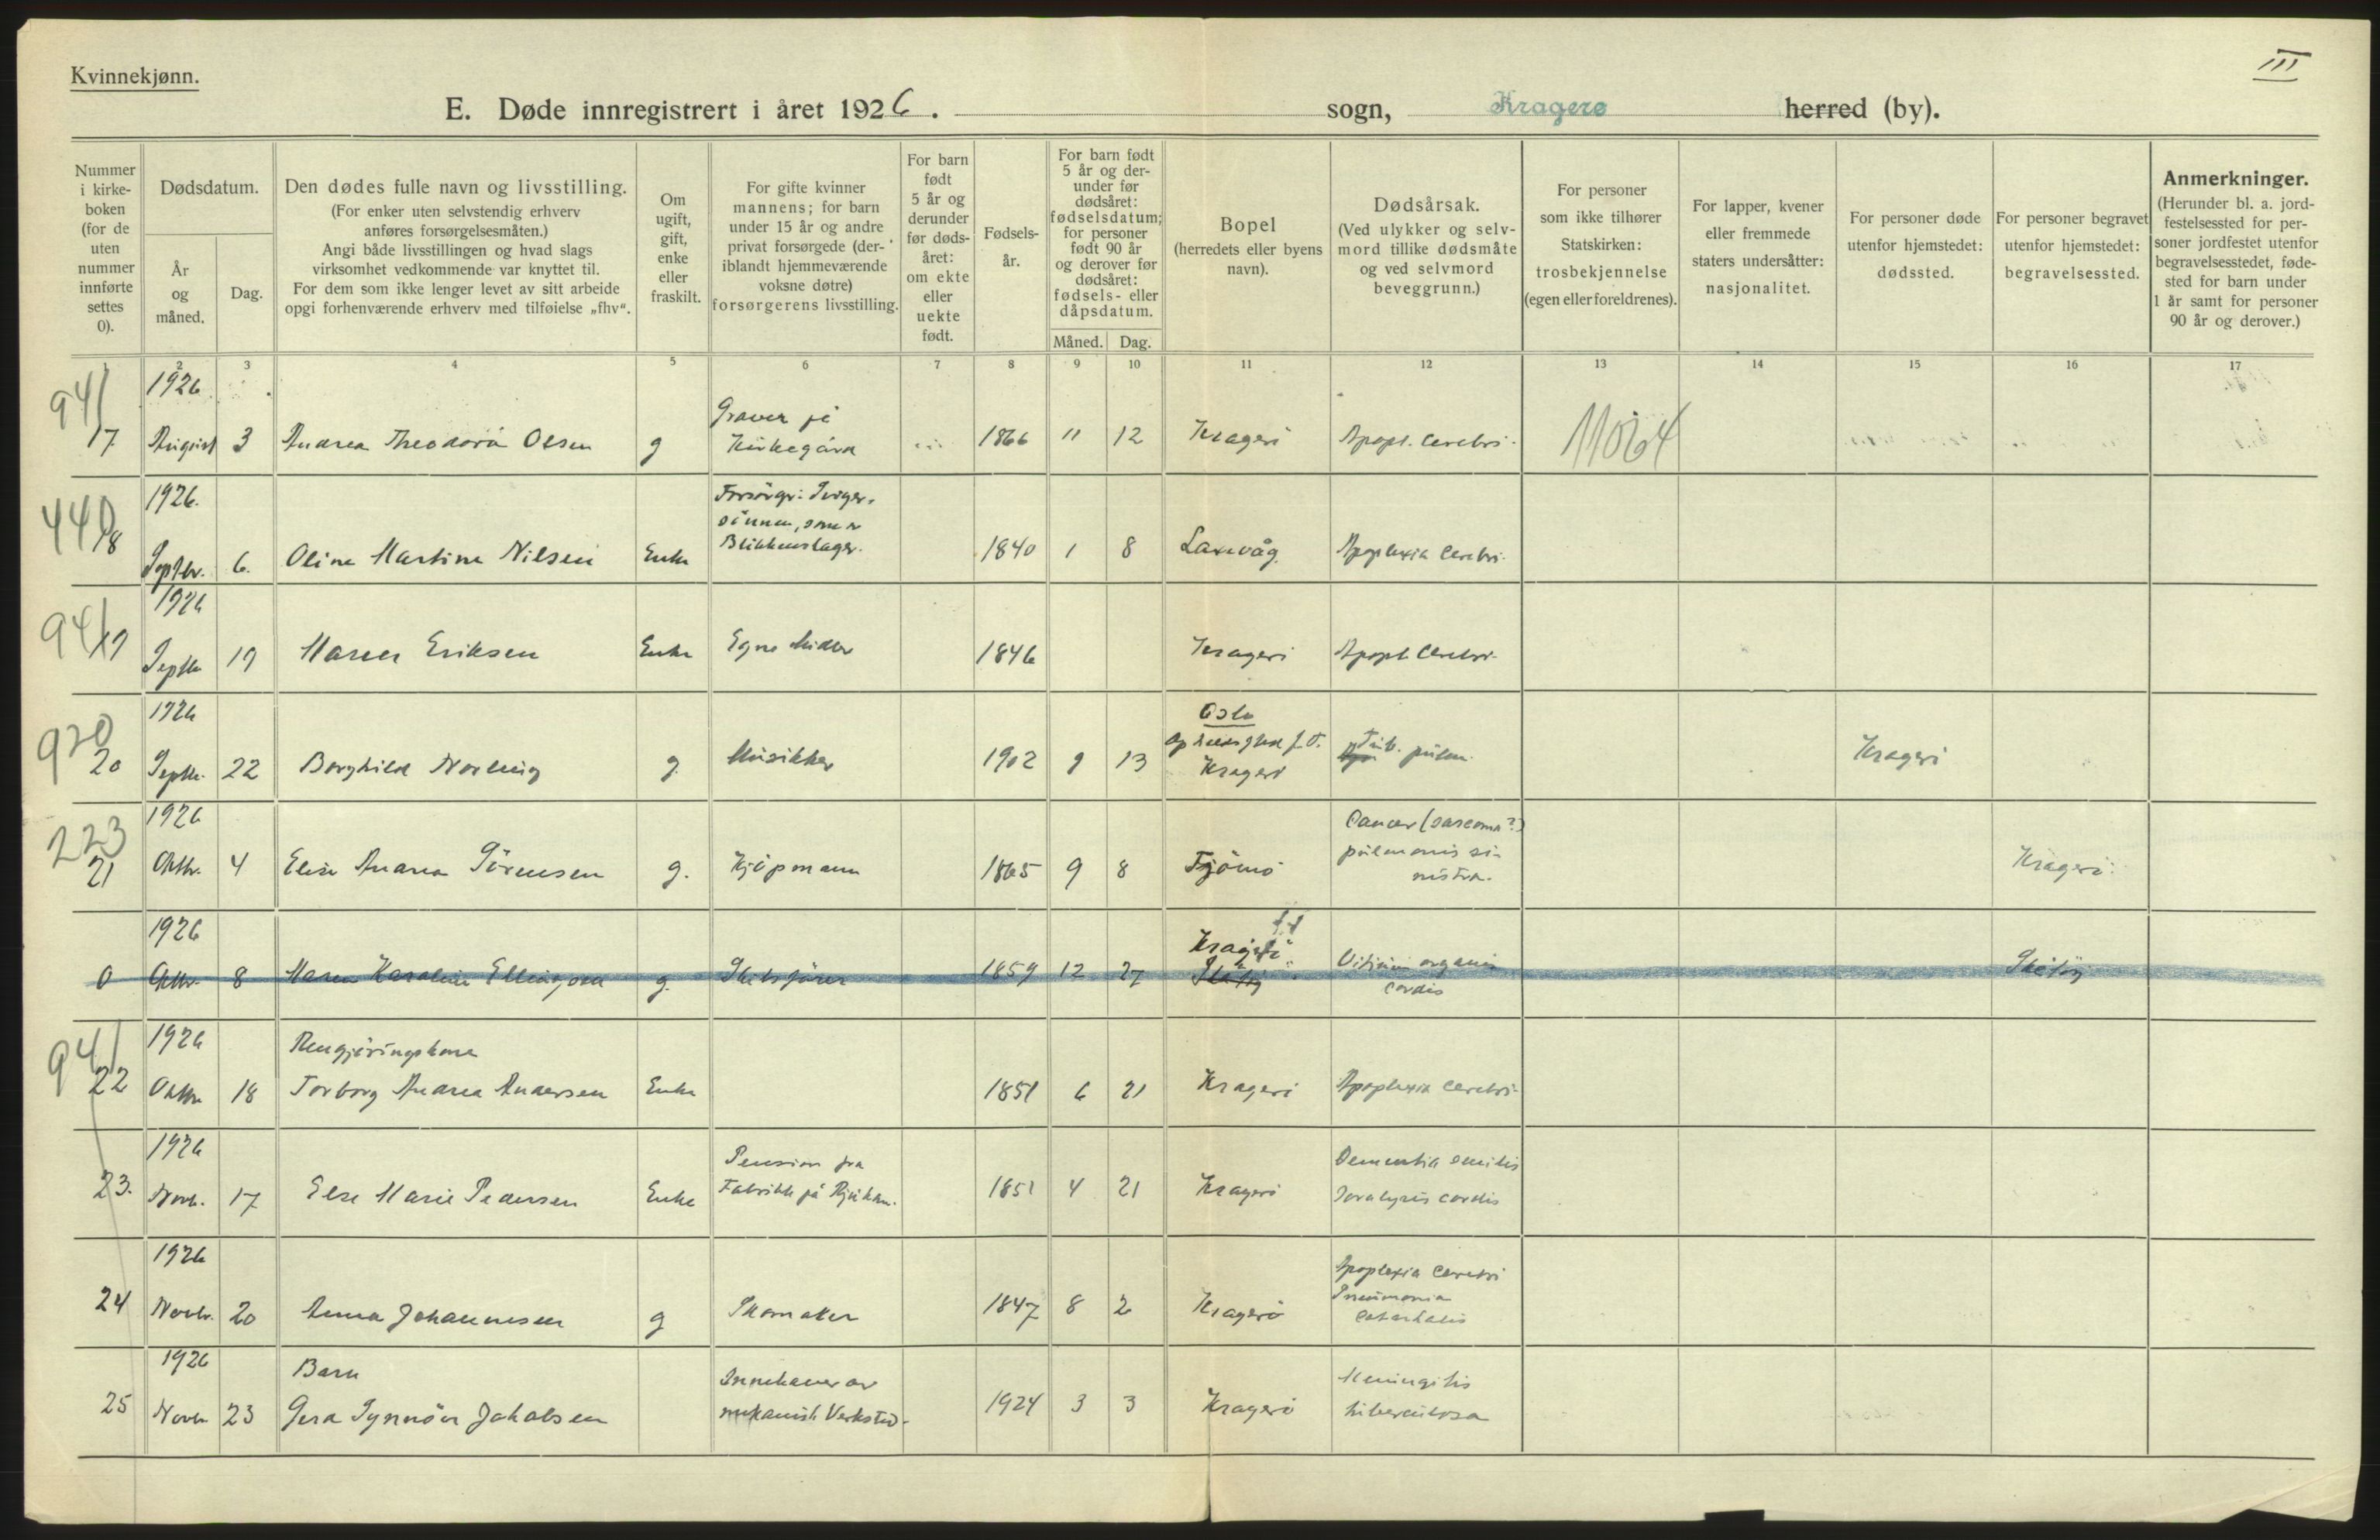 Kvinnekjønn.
III
E. Døde innregistrert i året 1926. sogn, Kragerø herred (by).
Nummer i kirke- boken (for de uten nummer innførte settes 0).
Dødsdatum.
År og måned.
Dag.
Den dødes fulle navn og livsstilling.
(For enker uten selvstendig erhverv anføres forsørgelsesmåten.)
Angi både livsstillingen og hvad slags virksomhet vedkommende var knyttet til.
For dem som ikke lenger levet av sitt arbeide opgi forhenværende erhverv med tilføielse „fhv“.
Om ugift, gift, enke eller fraskilt.
For gifte kvinner mannens; for barn under 15 år og andre privat forsørgede (der- iblandt hjemmeværende voksne døtre) forsørgerens livsstilling.
For barn født 5 år og derunder før døds- året: om ekte eller uekte født.
Fødsels- år.
For barn født 5 år og der- under før dødsåret: fødselsdatum; for personer født 90 år og derover før dødsåret: fødsels- eller dåpsdatum.
Måned. Dag.
Bopel (herredets eller byens navn).
Dødsårsak. (Ved ulykker og selv- mord tillike dødsmåte og ved selvmord beveggrunn.)
For personer som ikke tilhører Statskirken: trosbekjennelse (egen eller foreldrenes).
For lapper, kvener eller fremmede staters undersåtter: nasjonalitet.
For personer døde utenfor hjemstedet: dødssted.
For personer begravet utenfor hjemstedet: begravelsessted.
Anmerkninger. (Herunder bl. a. jord- festelsessted for per- soner jordfestet utenfor begravelsesstedet, føde- sted for barn under 1 år samt for personer 90 år og derover.)
1 2 3 4 5 6 7 8 9 10 11 12 13 14 15 16 17
941
17 1926 August 3 Andrea Theodora Olsen g Graver på Kirkegård 1866 11 12 Kragerö Apopl. cerebri. 11064
440
18 1926. Septbr. 6. Oline Martine Nilsen Enke Forsörger: Sviger- sönnen, som er Blikkenslager. 1840 1 8 Laxevåg Apoplexia cerebri.
941
19 1926 Septbr 19 Maren Eriksen Enke Egne Midler 1846 Kragerö Apopl. Cerebri.
920
20 1926 Septbr. 22 Borghild Norling g. Musikker 1902 9 13 Oslo Opholdssted f. T. Kragerö Tub. pulm. Kragerö
223
21 1926 Oktbr. 4 Elise Andrea Sörensen g. Kjöpmann 1865 9 8 Tjömö Cancer (sarcoma?) pulmonis si- nistra. Kragerö.
0 1926 Oktbr. 8 Maren Karoline Ellingsen g. Skibsförer 1859 12 27 Kragerö Skåtöy Vitium organic cordis Skåtöy
941
22 1926 Oktbr 18 Rengjöringskone Torborg Andrea Andersen Enke 1851 6 21 Kragerö Apoplexia cerebri.
23. 1926 Novb. 17 Else Marie Pedersen Enke Pension fra Fabrikk på Rjukan. 1851 4 21 Kragerö Dementia senilis Paralysis cordis
24 1926 Novbr. 20 Anna Johannesen g Skomaker 1847 8 2 Kragerö Apoplexia cerebri Pneumonia catarhalis
25 1926 Novbr 23 Barn Gera Synnöve Jakobsen Innehaver av mekanisk Verksted. 1924 3 3 Kragerö Meningitis tuberculosa